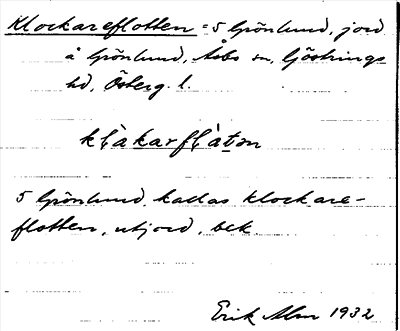 Klockareflotten = 5 Grönlund, jord
å Grönlund, Åsbo sn, Göstrings
hd, Österg. l.
klåkarflåtən
5 Grönlund, kallas Klockare-
flotten, utjord, bek.
Erik Alm 1932